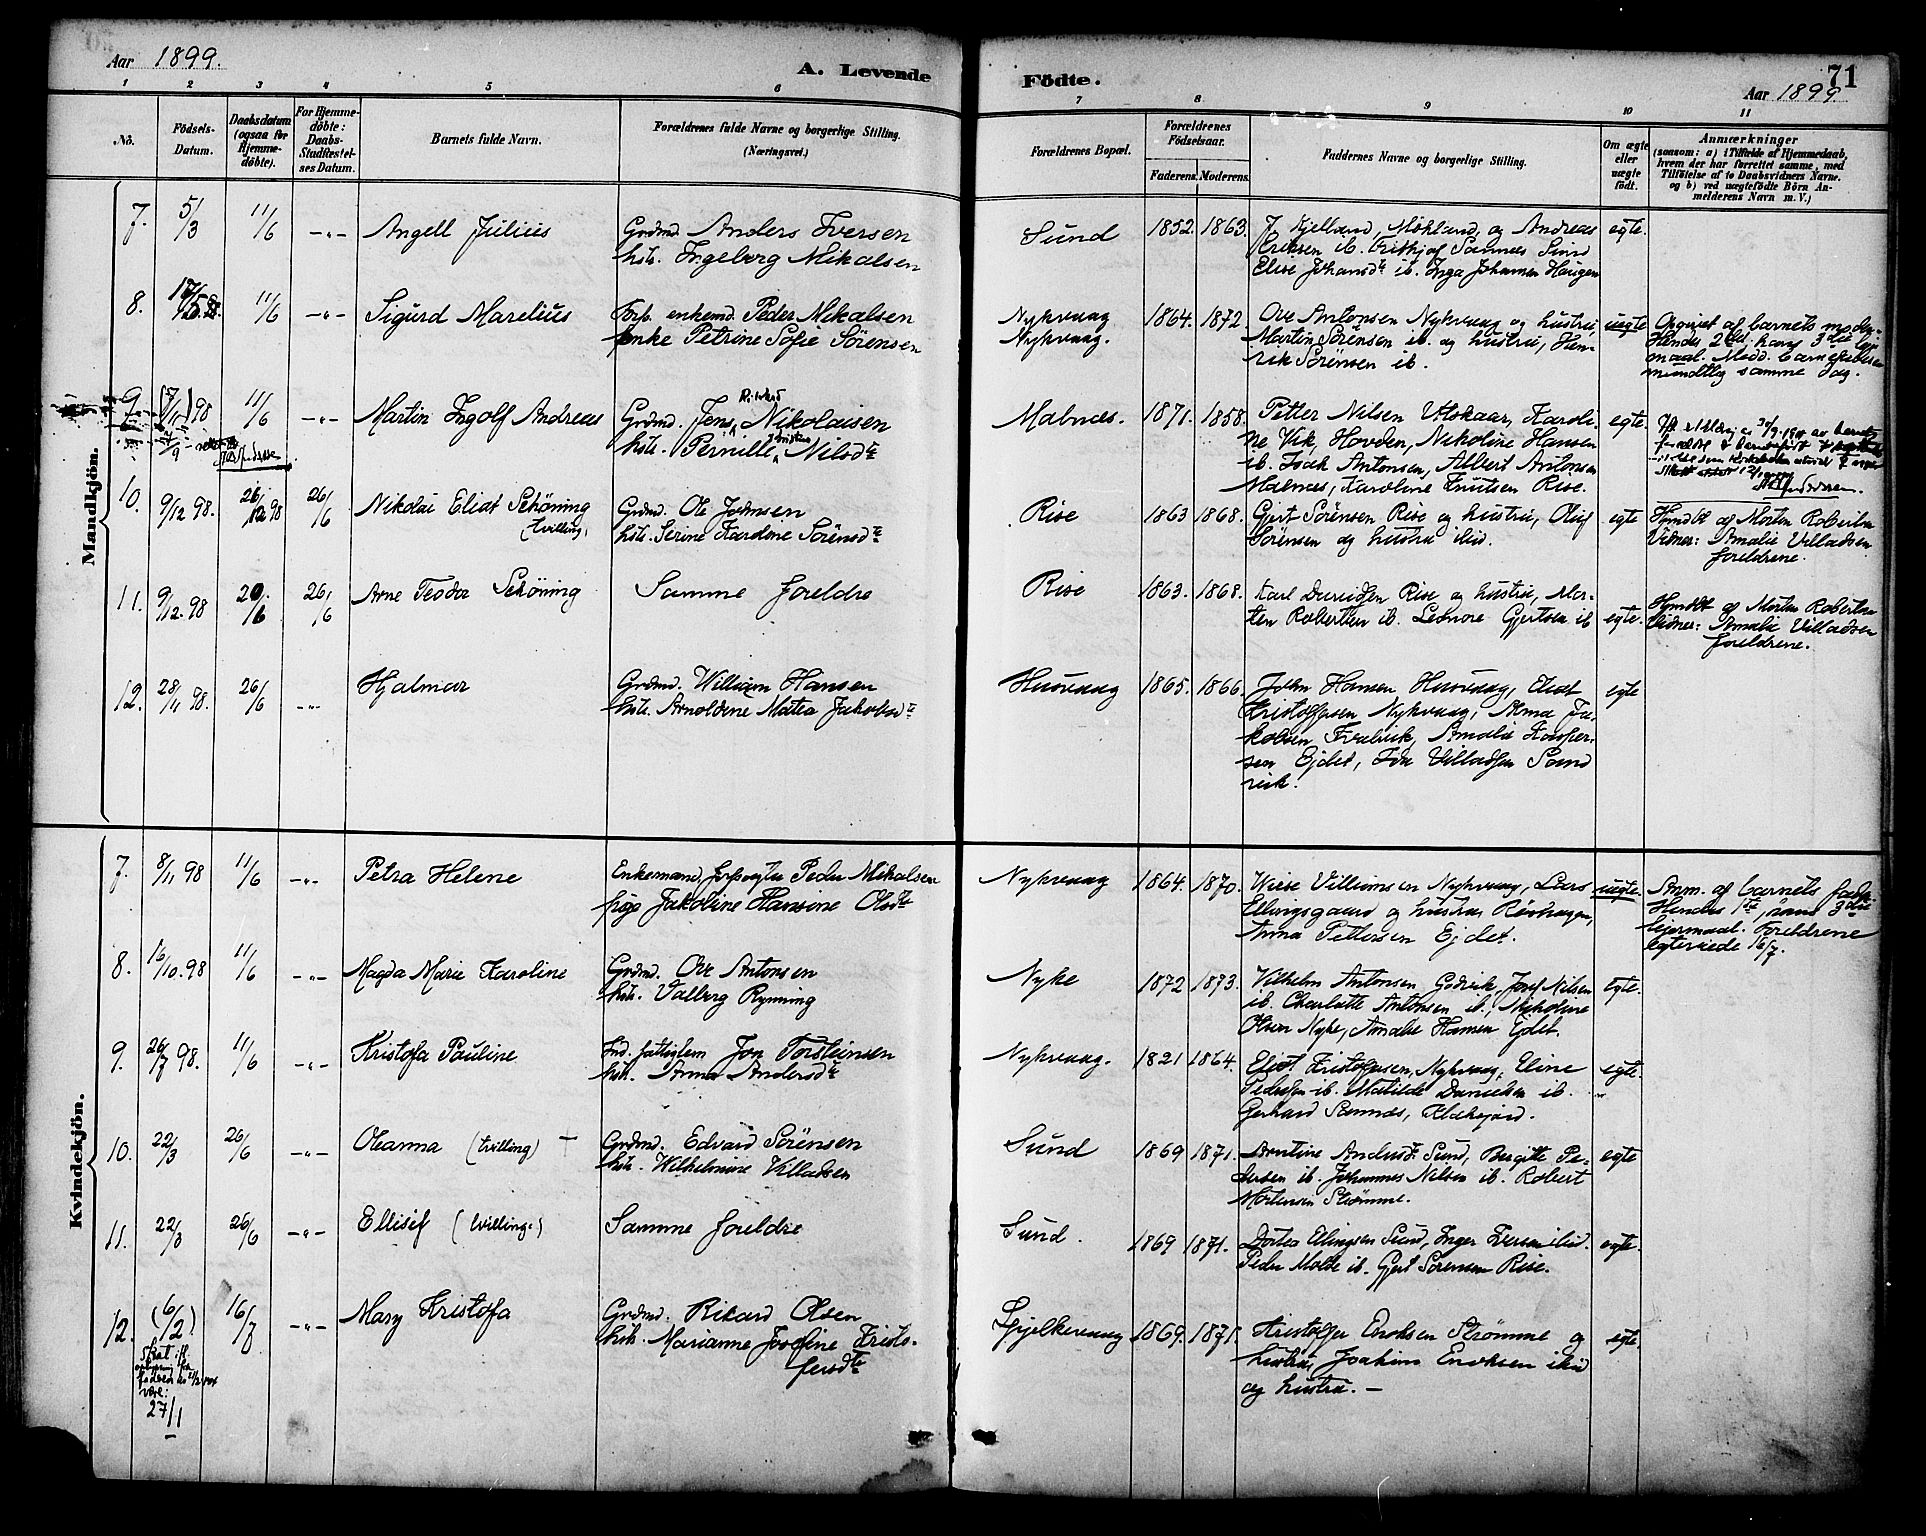 Aar 1899.
A. Levende
Födte.
71
Aar 1899
1 2 3 4 5 6 7 8 9 10 11
No.
Födsels-
Datum.
Daabsdatum
(ogsaa for
Hjemme-
döbte).
For Hjemme-
döbte:
Daabs-
Stadfæstel-
ses Datum.
Barnets fulde Navn.
Forældrenes fulde Navne og borgerlige Stilling.
(Næringsvei.)
Forældrenes Bopæl.
Forældrenes
Födselsaar.
Faderens. Moderens.
Faddernes Navne og borgerlige Stilling.
Om ægte
eller
uægte
födt.
Anmærkninger
(saasom: a) i Tilfælde af Hjemmedaab,
hvem der har forrettet samme, med
Tilföielse af to Daabsvidners Navne.
og b) ved uægtefödte Börn An-
melderens Navn m. V.)
Mandkjön.
7. 5/3 11/6 -"- Angell Julius
Grdmd. Anders Iversen
hstr. Ingeborg Mikalsen
Sund 1852. 1863.
J. Kjelland, Mohland, og Andreas
Eriksen ib. Frithjof Sannes Sund
Elise Johansdtr ib. Inga Johansen Haugen
egte.
8. 11/6 -"- Sigurd Marelius
Forb. enkemd. Peder Mikalsen
enke Petrine Sofie Sörensen
Nykvaag
Nykvaag.
1864. 1872.
Ove Antonsen Nykvaag og hustru
Martin Sörensen ib. og hustru, Hen-
rik Sörensen ib.
uegte
Opgivet af barnets moder.
Hendes 2det, hans 3die leier
maal.
mundtlig samme dag.
9. (7/11) 98 11/6 -"- Martin Ingolf Andreas
Grdmd. Jens Rikard Nikolaisen
hstr. Pernille Nilsdtr
Malnes. 1871. 1858.
Petter Nilsen Utskaar, Karoli-
ne Vik, Hovden, Nikoline Hansen
ib. Isak Antonsen, Albert Antonsen
Malnes, Karoline Knutsen Rise.
egte.
10. 9/12 98. 26/12 98 26/6 Nikolai Eliot Schöning
(tvilling)
Grdmd. Ole Johnsen
hstr. Serine Karoline Sörensdtr
Rise 1863 1868.
Gjert Sörensen Rise og hustru, Oluf
Sörensen og hustru ibid.
egte
Hjmdbt af Morten Robertsen
Vidner: Amalie Villadsen
foreldrene.
11. 9/12. 98 26/6 Arne Teodor Schöning
Samme foreldre
Rise 1863. 1868.
Karl Davidsen Rise og hustru, Mor-
ten Robertsen ib. Leonore Gjertsen ib
egte.
Hjmdbt af Morten Robertsen
Vidner: Amalie Villadsen
foreldrene.
12. 28/11 98. 26/6 -"- Hjalmar
Grdmd. William Hansen
hstr. Arnoldine Matea Jakobsdtr
Husvaag 1865. 1866.
John Hansen Husvaag, Eliot
Kristoffersen Nykvaag, Alma Ja-
kobsen Fralvik, Amalie Kasper-
sen Ejdet, Ida Villadsen Sand
vik.
egte
Kvindekjön.
7. 8/11 98 11/6 -"- Petra Helene
Enkemand, Peder Mikalsen
pige Jakoline Hansine Olsdtr
Nykvaag 1864. 1870.
Wiese Villiamsen Nykvaag, Lars
Ellingsgaard og hustru
Anna Pettersen Ejdet.
uegte.
Anm. af barnets fader
Hendes 1ste, hans 3die
leiermaal. Foreldrene
egteviede 16/7.
8. 16/10. 98 11/6 -"- Magda Marie Karoline
Grdmd. Ove Antonsen
hstr. Valborg Rynning
Nyke 1872 1873.
Vilhelm Antonsen, Godvik, Josef Nilsen
ib. Charlotte Antonsen ib., Nikoline
Olsen Nyke, Amalie Hansen Ejdet.
egte.
9. 26/7 98. 11/6 -"- Kristofa Pauline
Ind. fattiglem Jon Torsteinsen
hstr. Anna Andersdtr
Nykvaag. 1821 1864.
Eliot Kristoffersen, Nykvaag, Eline
Pedersen ib. Matilde Danielsen ib.
Gerhard Sannes,
egte.
10. 22/3 26/6 -"- Oleanna (tvilling)
Grdmd. Edvard Sörensen
hstr. Wilhelmine Villadsen
Sund 1869 1871.
Arntine Andersdtr Sund, Bergitte Pe-
dersen ib. Johannes Nilsen ib. Robert
Mortensen Strömme.
egte
11. 22/3 26/6 -"- Ellisif (tvilling)
Samme foreldre
Sund. 1869 1871.
Dortea Ellingsen Sund, Inger Iversen ibid.
Peder Molde ib. Gjert Sörensen Rise.
egte.
12. (6/2). 16/7 -"- Mary Kristofa
skal
være:
27/1
Grdmd. Rikard Olsen
hstr. Marianne Josefine Kristo-
fersdtr
Gjelkevaag 1869. 1871.
Kristoffer Enoksen Strömme og
hustru, Joakim Enoksen ibid
og hustru. —
egte.